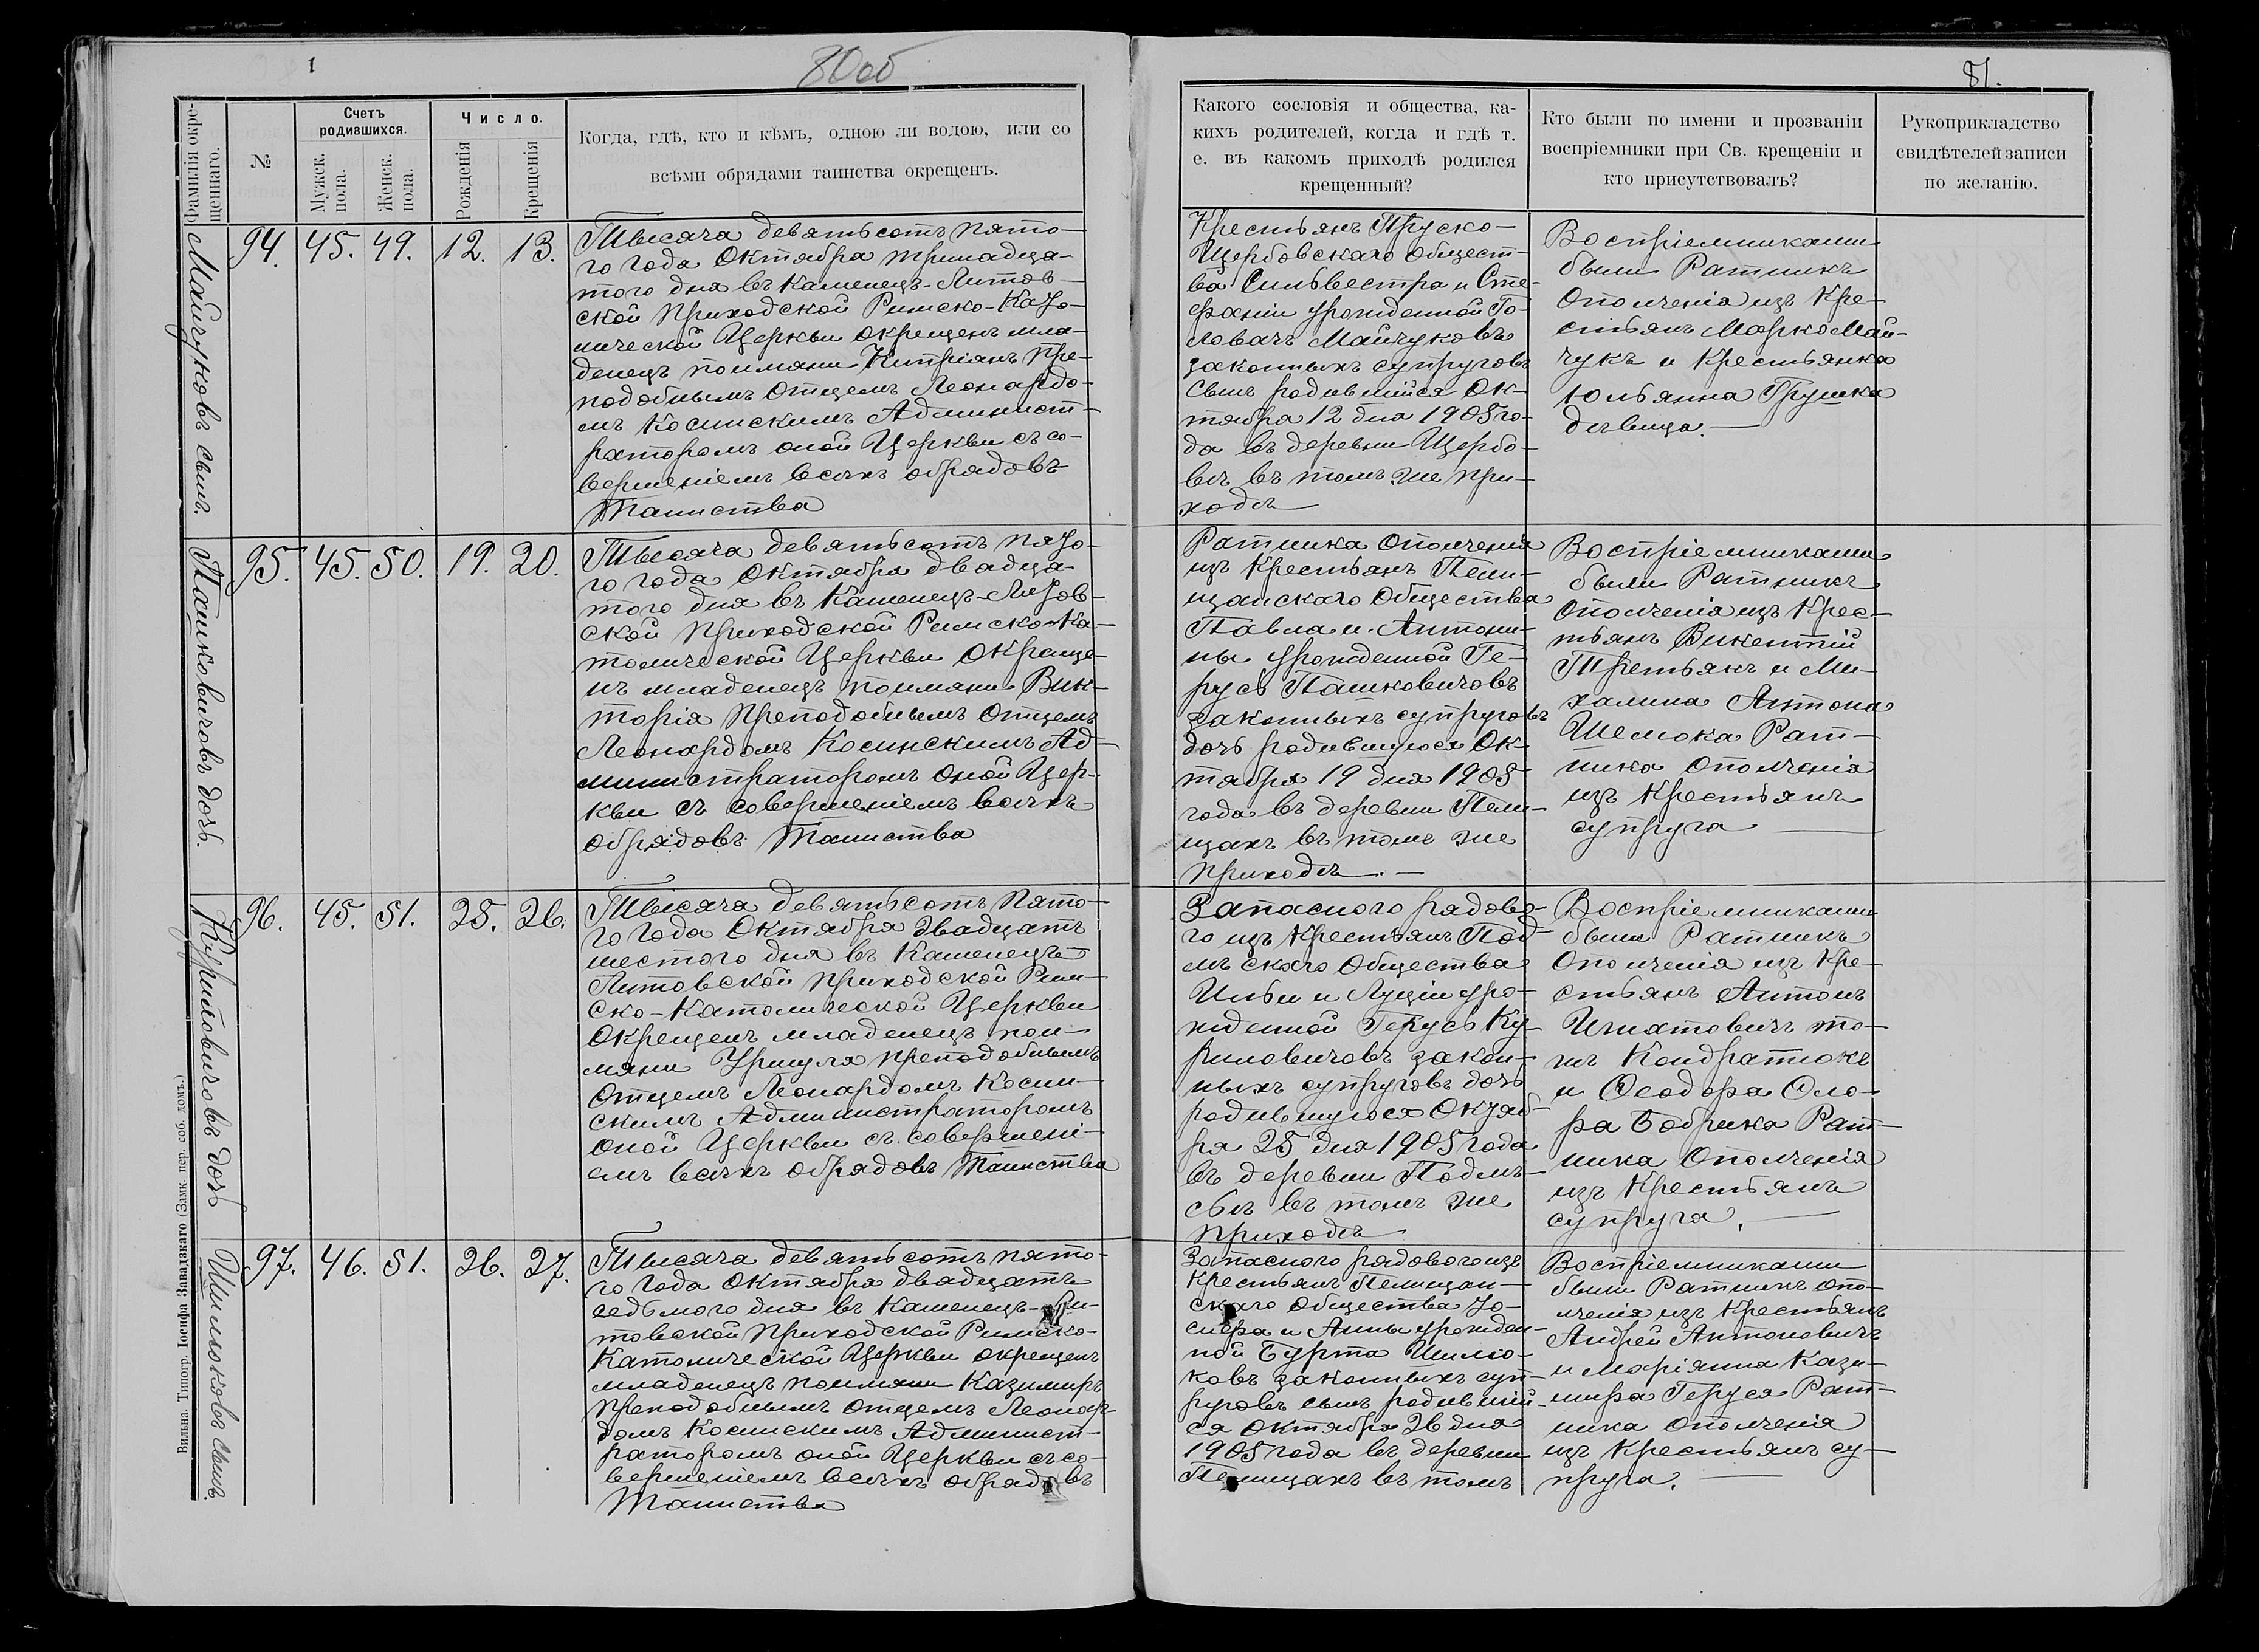 1
80об
81.
Фамилія окре-
щеннаго.
№
Счетъ
родившихся.
Мужск.
пола.
Женск.
пола.
Число.
Рожденія
Крещенія
Когда, гдѣ, кто и кѣмъ, одною ли водою, или со
всѣми обрядами таинства окрещенъ.
Какого сословія и общества, ка-
кихъ родителей, когда и гдѣ т.
е. въ какомъ приходѣ родился
крещенный?
Кто были по имени и прозваніи
воспріемники при Св. крещеніи и
кто присутствовалъ?
Рукоприкладство
свидѣтелей записи
по желанію.
Майчуковъ сынъ.
94. 45. 49. 12. 13.
Тысяча девятьсотъ пято-
го года Октября тринадца-
того дня въ Каменецъ-Литов-
ской приходской Римско-Като-
лической Церкви окрещенъ мла-
денецъ поимяни Кипріянъ пре-
подобнымъ Отцемъ Леонардо-
мъ Косинскимъ Админист-
раторомъ оной Церкви съ со-
вершеніемъ всѣхъ обрядовъ
Таинства
Крестьянъ Пруско-
Щербовскаго общест-
ва Сильвестра и Сте-
фаніи урожденной Го-
ловачъ Майчуковъ
законныхъ супруговъ
сынъ родившійся Ок-
тября 12 дня 1905 го-
да въ деревни Щербо-
вѣ въ томъ же при-
ходѣ
Воспріемниками
были Ратникъ
Ополченія изъ Кре-
стьянъ Марко Май-
чукъ и Крестьянка
Юльянна Грушка
дѣвица.
Пашковичовъ дочь.
95. 45. 50. 19. 20.
Тысяча девятьсотъ пято-
го года Октября двадца-
того дня въ Каменецъ-Литов-
ской приходской Римско-Ка-
толической Церкви Окраще-
нъ младенецъ поимяни Вик-
торія преподобнымъ Отцемъ
Леонардомъ Косинскимъ Ад-
министраторомъ оной Цер-
кви съ совершеніемъ всѣхъ
обрядовъ Таинства
Ратника Ополченія
изъ Крестьянъ Пели-
щанскаго Общества
Павла и Антони-
ны урожденной Ге-
русь Пашковичовъ
законныхъ супруговъ
дочь родившуюся Ок-
тября 19 дня 1905
года въ деревни Пели-
щахъ въ томъ же
приходѣ.
Воспріемниками
были Ратникъ
Ополченія изъ Крес-
тьянъ Викентій
Третьякъ и Ми-
халина Антона
Шемюка Рат-
ника Ополченія
изъ Крестьянъ
супруга
Куриловичовъ дочь
96. 45. 51. 25. 26.
Тысяча девятьсотъ пято-
го года Октября двадцать
шестого дня въ Каменецъ
Литовской приходской Рим-
ско-Католической Церкви
Окрещенъ младенецъ пои-
мяни Уршуля преподобнымъ
Отцемъ Леонардомъ Косин-
скимъ Администраторомъ
оной Церкви съ совершені-
емъ всѣхъ обрядовъ Таинства
Запасного рядово-
го изъ Крестьянъ Под-
мъскаго Общества
Ильи и Луціи уро-
жденной Герусь Ку-
риловичовъ закон-
ныхъ супруговъ дочь
родившуюся Октяб-
ря 25 дня 1905 года
въ деревни Подмъ-
сьѣ въ томъ же
приходѣ
Воспріемниками
были Ратникъ
Ополченія изъ Кре-
стьянъ Антонъ
Игнатовичъ то-
жъ Кондратюкъ
и Ѳеодора Фло-
ра Бобрика Рат-
ника Ополченія
изъ Крестьянъ
супруга.
Шилюковъ сынъ.
97. 46. 51. 26. 27.
Тысяча девятьсотъ пято-
го года Октября двадцать
седьмого дня въ Каменецъ-Ли-
товской приходской Римско-
Католической Церкви окрещенъ
младенецъ поимяни Казимиръ
преподобнымъ отцемъ Леонар-
домъ Косинскимъ Админист-
раторомъ оной Церкви съ со-
вершеніемъ всѣхъ обрядовъ
Таинства
Запасного рядового изъ
Крестьянъ Пелищан-
скаго Общества Іо-
сифа и Анны урожден-
ной Бурта Шилю-
ковъ законныхъ суп-
руговъ сынъ родившій-
ся Октября 26 дня
1905 года въ деревни
Пелищахъ въ томъ
Воспріемниками
были Ратникъ Опо-
лченія изъ Крестьянъ
Андрей Антоновичъ
и Маріянна Кази-
мира Геруся Рат-
ника ополченія
изъ Крестьянъ су-
пруга.
Вильна. Типогр. Іосифа Завадзкаго (Замк. пер. соб. домъ.)